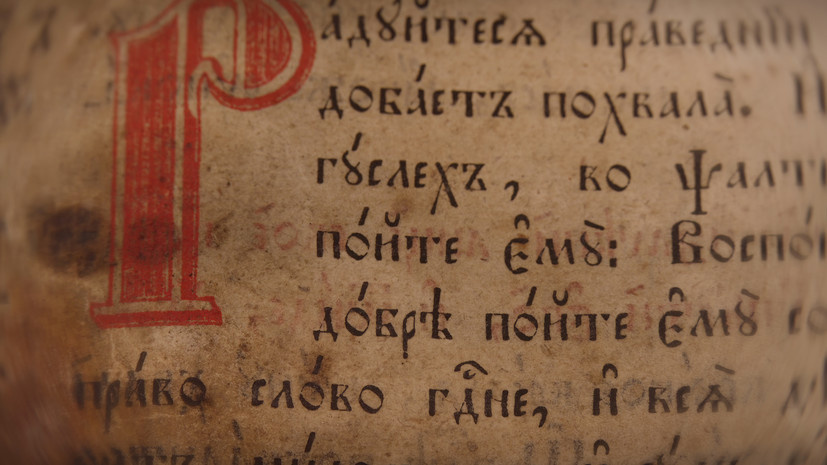 Ра́дꙋйтесѧ пра́веднїи
доба́етъ похвала̀.
гꙋ́слехъ, во ѱалти
по́йте є҆мꙋ̀: Воспо́
до́брѣ по́йте є҆мꙋ̀ со
пра́во сло́во гд҇не, и҆ всѧ̀